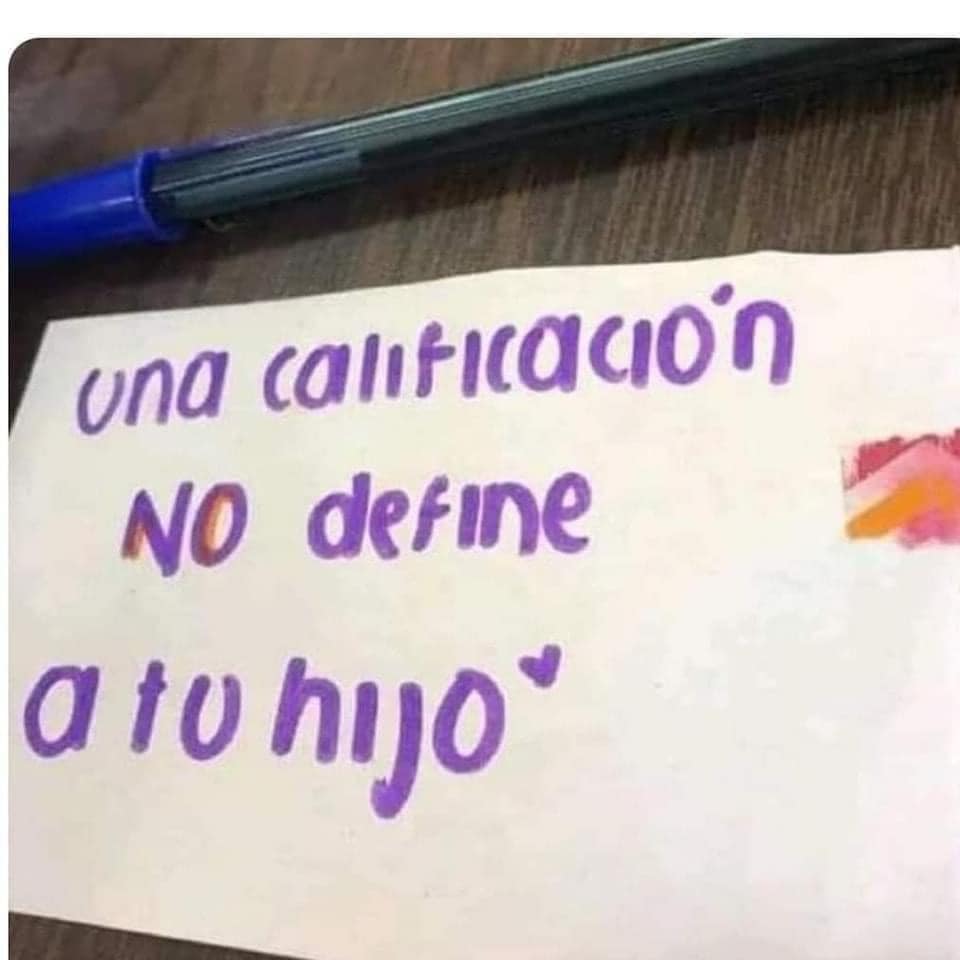 una calificación
NO define
a tu hijo